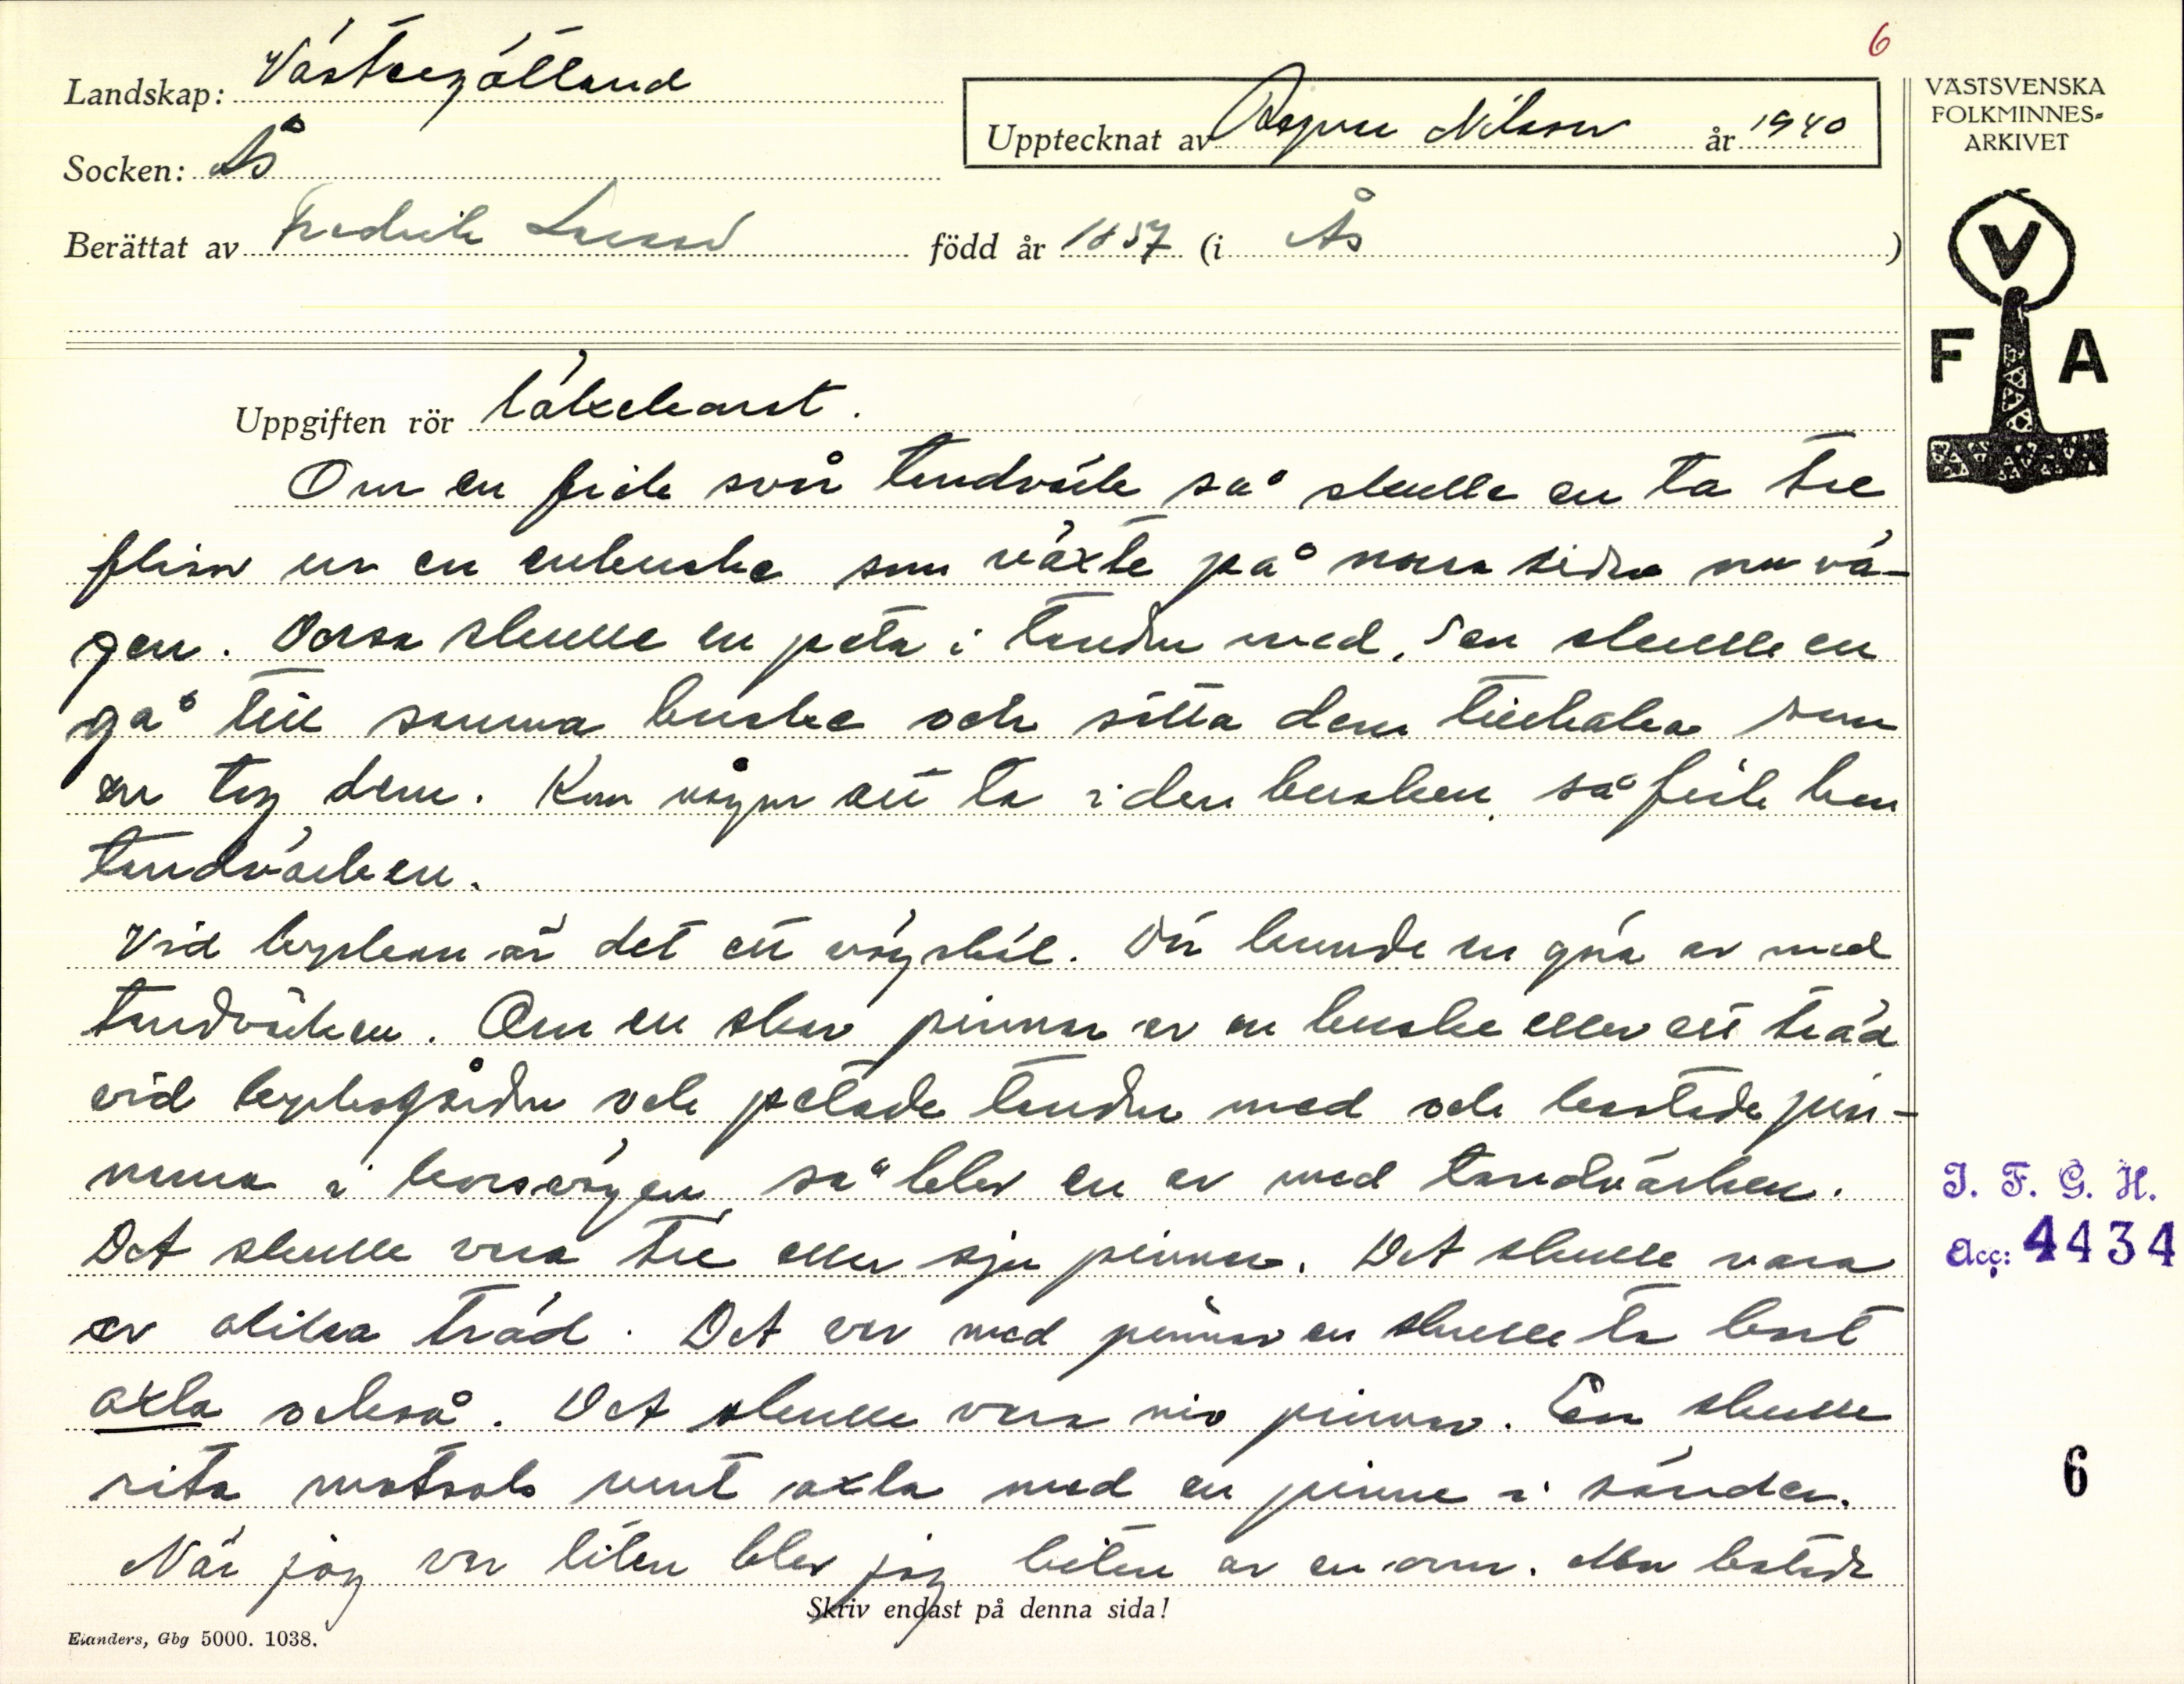 6
Landskap: Västergötland
Upptecknat av Ragnar Nilsson år 1940
Socken: Ås
Berättat av Fredrik Lusand född år 1857 (i Ås)
VÄSTSVENSKA
FOLKMINNES-
ARKIVET
V
F A
Uppgiften rör läkekonst.
Om en fick svår tandvärk så skulle en ta tre
flisor ur en enbuske som växte på norra sidan om vä-
gen. Dessa skulle en peta i tanden med, sen skulle en
gå till samma buske och sätta dem tillbaka som
en tog dem. Kom någon att ta i den busken, så fick han
tandvärken.
Vid kyrkan är det ett vägskäl. Där kunde en göra av med
tandvärken. Om en skar pinnar av en buske eller ett träd
vid kyrkogården och petade tanden med och kastade pin-
narna i korsvägen, så blev en av med tandvärken.
Det skulle vara tre eller sju pinnar. Det skulle vara
av olika träd. Det var med pinnar en skulle ta bort
axla också. Det skulle vara nio pinnar. En skulle
rita motsols runt axla med en pinne i sänder.
När jag var liten blev jag biten av en orm.
Skriv endast på denna sida!
Elanders, Gbg 5000. 1038.
I. F. G. H.
Acc: 4434
6